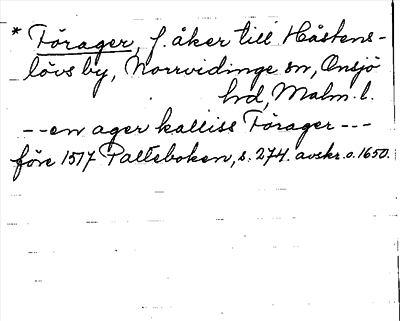 * Förager, f. åker till Håstens-
lövs by, Norrvidinge sn, Onsjö
hd, Malm. l.
--en ager kalliss Förager---
före 1517 Palteboken, s. 274. avskr. o. 1650.